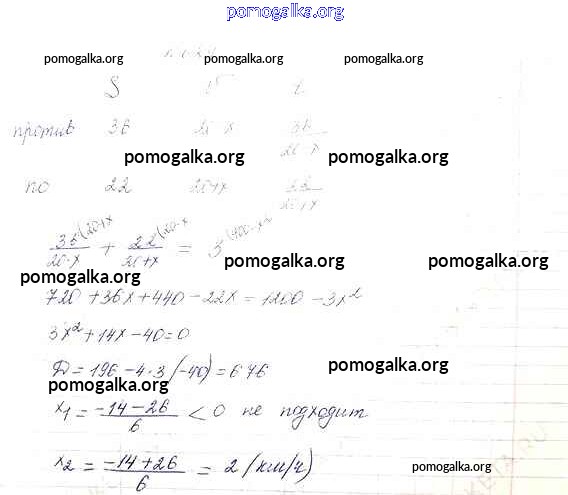 pomogalka.org
pomogalka.org pomogalka.org pomogalka.org
S V t
против 36 20-x 36/20-x
pomogalka.org pomogalka.org
по 22 20+x 22/20+x
36/20-x (20+x + 22/20+x (20-x = 3 (400-x²
pomogalka.org pomogalka.org pomogalka.org
720 + 36x + 440 - 22x = 1200 - 3x²
3x² + 14x - 40 = 0
D = 196 - 4·3(-40) = 676
pomogalka.org
pomogalka.org
x₁ = -14-26/6 < 0 не подходит
x₂ = -14+26/6 = 2 (км/ч)
pomogalka.org